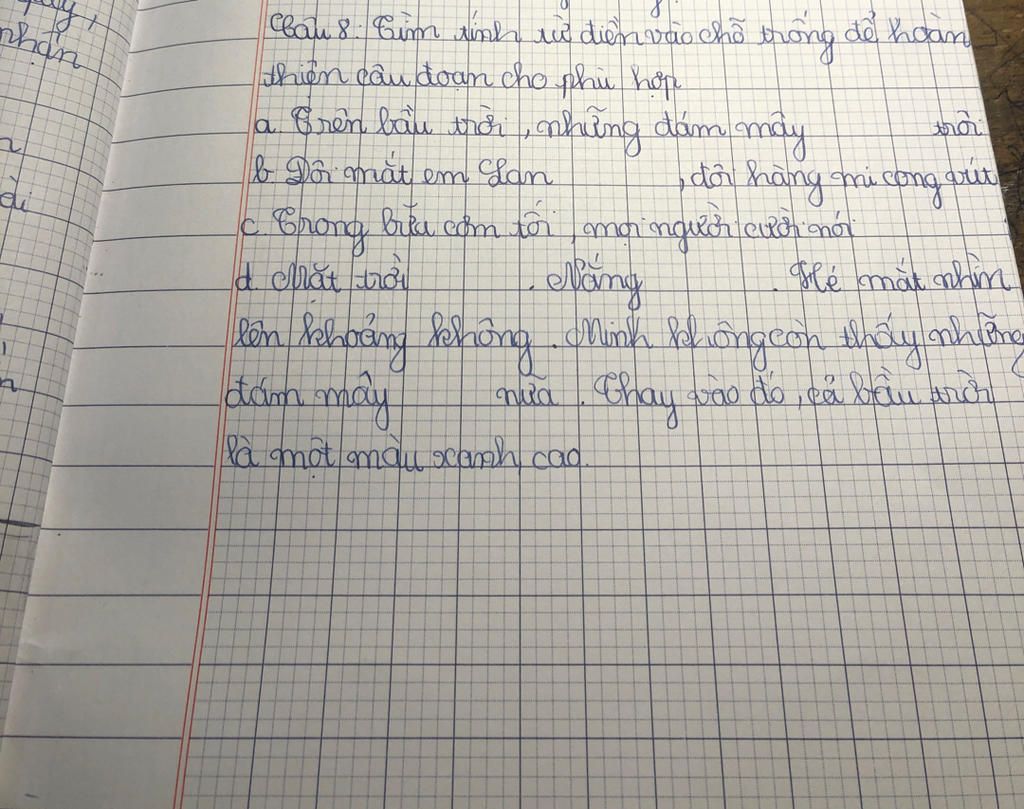 nhận
Câu 8: Tìm tính từ điền vào chỗ trống để hoàn
thiện câu đoạn cho phù hợp
a. Trên bầu trời, những đám mây trôi
b. Đôi mắt em Lan , đôi hàng mi cong vút
c. Trong bữa cơm tối, mọi người cười nói
d. Mặt trời . Nắng . Hé mắt nhìn
lên khoảng không. Minh không còn thấy những
đám mây nữa. Thay vào đó, cả bầu trời
là một màu xanh cao.